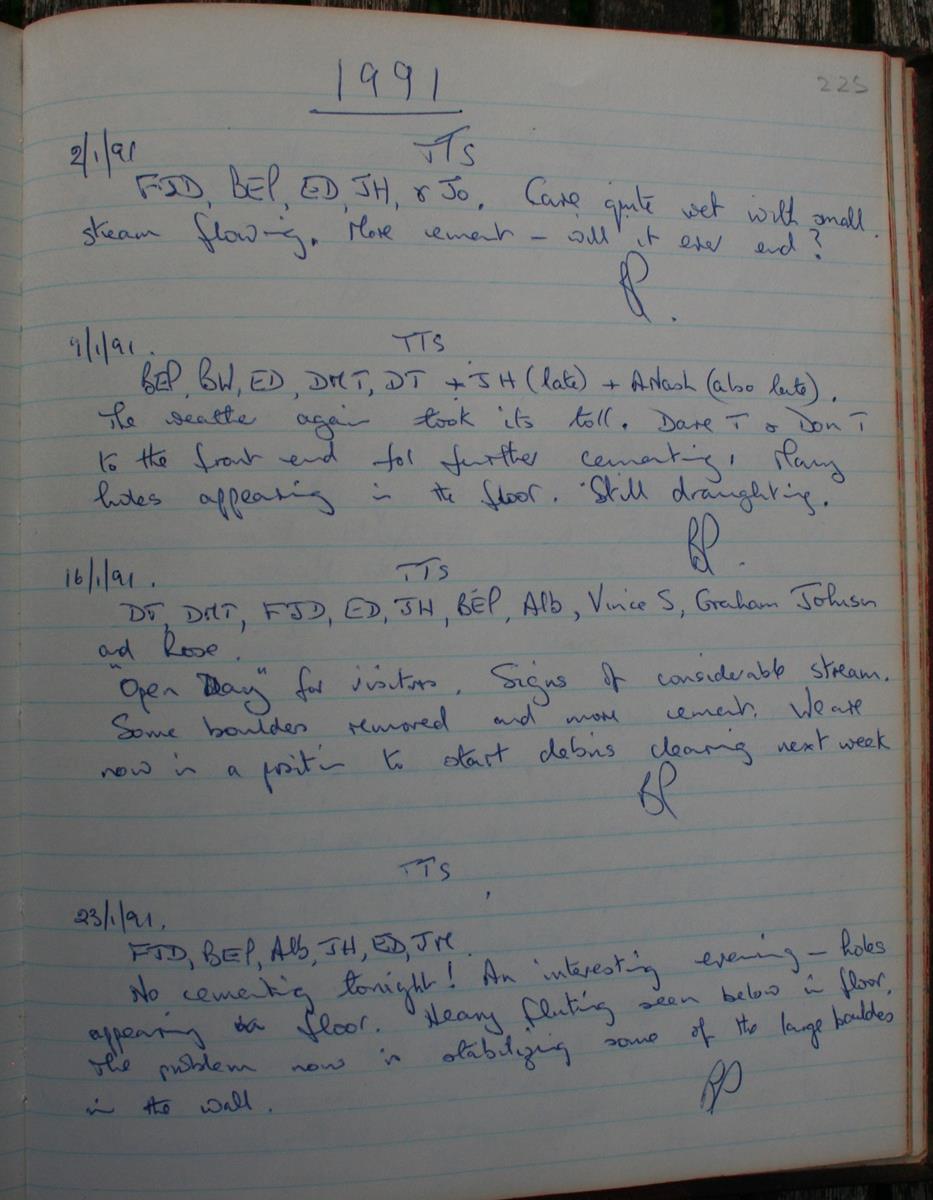 1991
225
2/1/91 TTS
FJD, BEP, ED, JH, & Jo. Cave quite wet with small
stream flowing. More cement – will it ever end?
BP.
9/1/91. TTS
BEP, BW, ED, DMT, DT + JH (late) + A Nash (also late).
The weather again took its toll. Dave T & Don T
to the front end for further cementing. Many
holes appearing in the floor. Still draughting.
BP.
16/1/91. TTS
DT, DMT, FJD, ED, JH, BEP, Alb, Vince S, Graham Johnson
and Rose.
"Open Day" for visitors. Signs of considerable stream.
Some boulders removed and more cement. We are
now in a position to start debris clearing next week
BP
TTS
23/1/91.
FJD, BEP, Alb, JH, ED, JM.
No cementing tonight! An interesting evening – holes
appearing in floor. Heavy fluting seen below in floor.
The problem now is stabilizing some of the large boulders
in the wall.
BP